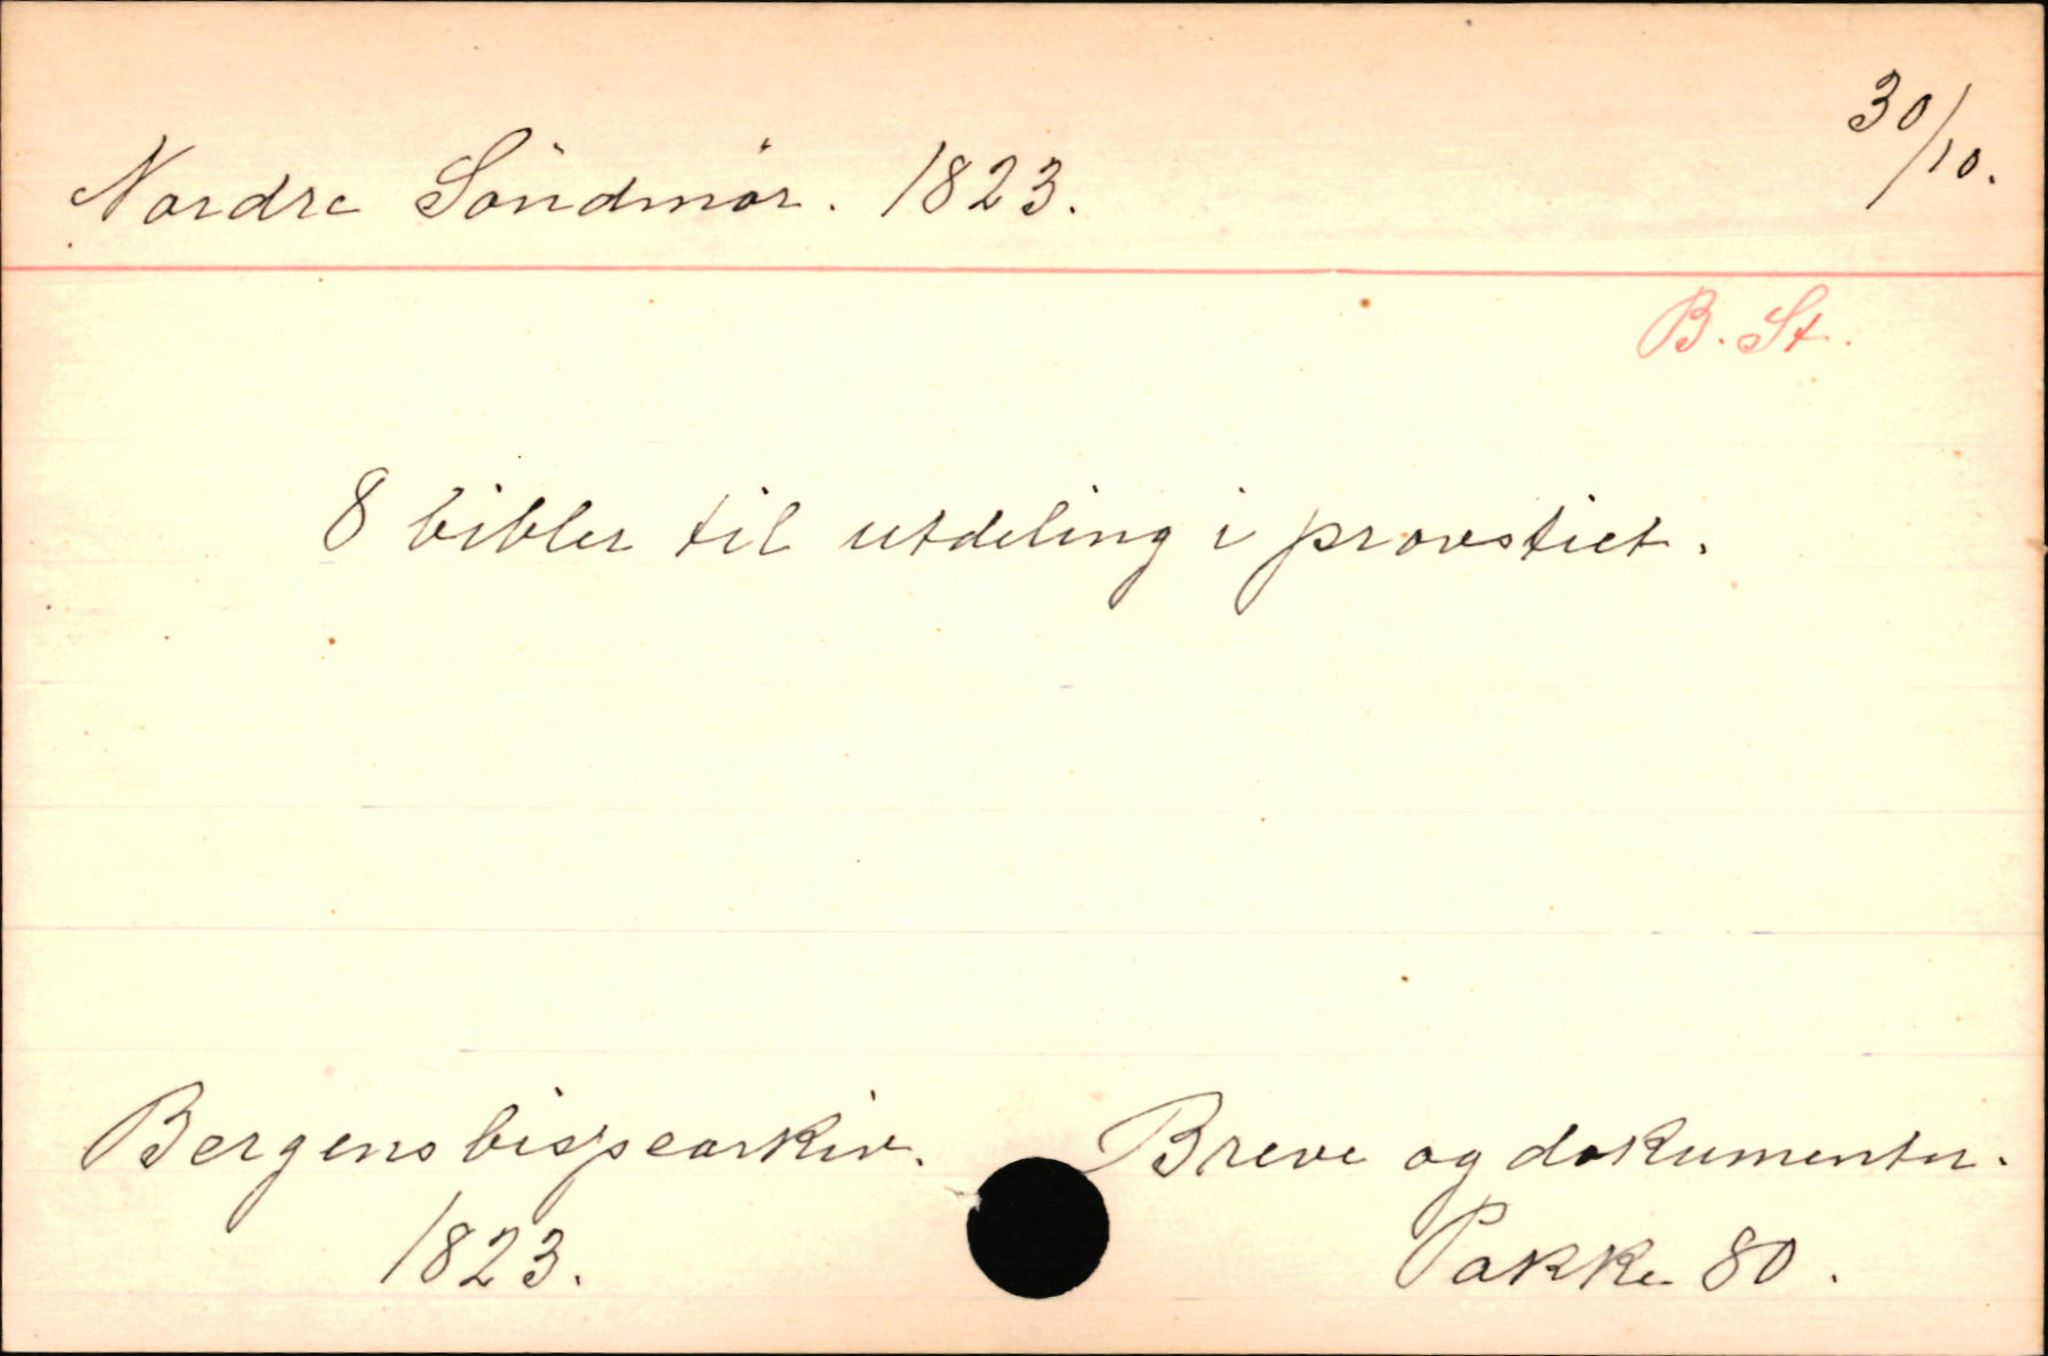 Nordre Söndmör. 1823. 30/10.
B. St.
8 bibler til utdeling i provstiet.
Bergens bispearkiv. Breve og dokumenter.
1823. Pakke 80.